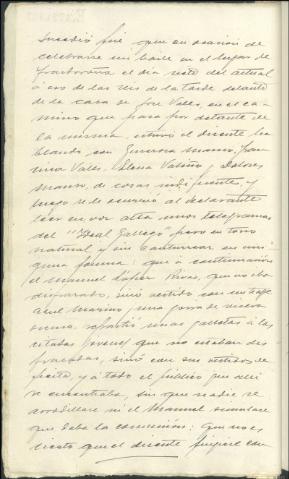 Sucedió fué que en ocasión de
celebrarse un baile en el lugar de
el día siete del actual
á eso de las seis de la tarde delante
de la casa de José Valles, en el ca-
mino que pasa por delante de
la misma, estuvo el dicente ha-
blando con Generosa Manso, Jose-
Valles, Elena Valiño, y Dolores
Manso, de cosas indiferentes, y
luego se le ocurrió al declarante
leer en voz alta unos telegramas
del "Ideal Gallego" pero en tono
natural y sin canturrear en nin-
guna forma: que á continuación
el Manuel López Rivas, que no iba
disfrazado, sino vestido con un traje
azul marino y una gorra de visera
oscura repartió unas galletas á las
citadas jóvenes que no estaban dis-
frazadas, sinó con sus vestidos de
y á todo el público que allí
se encontraba, sin que nadie se
arrodillase ni el Manuel simulase
que daba la comunión: Que no es
cierto que el dicente fingiese con